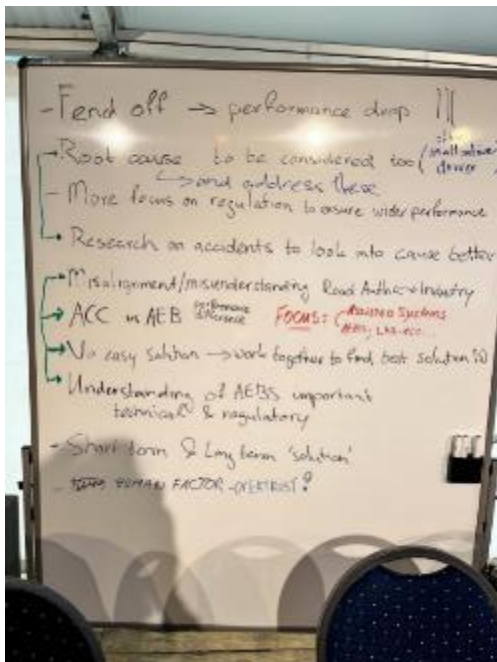 - Fend off → performance drop
- Root cause to be considered too (inattentive driver)
↳ and address these
- More focus on regulation to ensure wider performance
- Research on accidents to look into cause better
- Misalignment/misunderstanding Road Author. Industry
- ACC vs AEB performance difference FOCUS: Assisted Systems
AEBS, LKS, ACC...
- No easy solution → work together to find best solution
- Understanding of AEBS important
technical & regulatory
- Short term & Long term 'solution'
- HUMAN FACTOR - OVERTRUST?